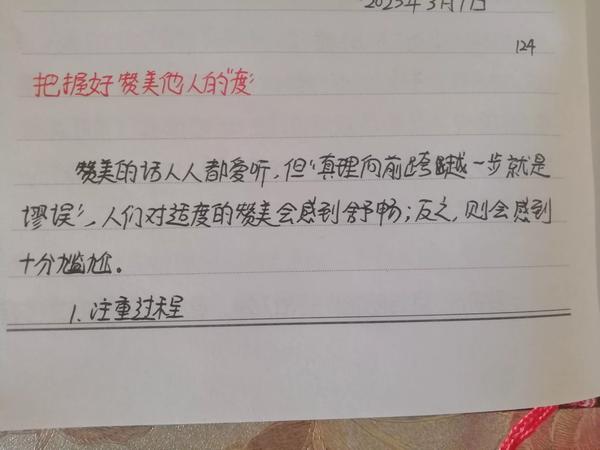 2023年3月1日
124
把握好赞美他人的“度”
赞美的话人人都爱听，但“真理向前跨越一步就是
谬误”，人们对适度的赞美会感到舒畅；反之，则会感到
十分尴尬。
1. 注重过程